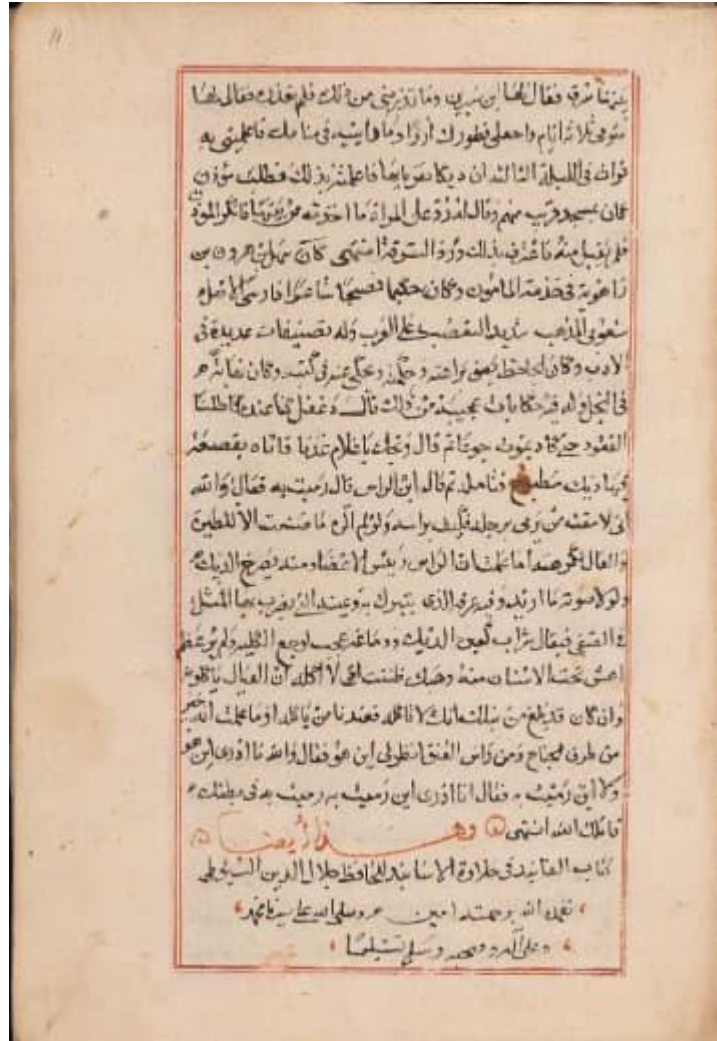 فقال لها ابن سيرين وما تذكرينى من ذلك فلم تجد فقال لها
صومى ثلاثة أيام واجعلى فطورك ارزا وما رايتيه فى منامك فاعلمينى به
فرات فى الليلة الثالثة ان ديكا فاعلمته بذلك فطلب مؤذن
كان بمسجد قريب منهم وقال اردد على المراة ما اخذته من فانكر المؤذن
فلم يقبل منه فاعترف بذلك ورد السرقة انتهى كان سهل بن هرون بن
راهوية فى خدمة المامون وكان حكيما فصيحا شاعرا فارسى الاصل
شعوبى المذهب شديد التعصب على العرب وله تصنيفات عديدة فى
الادب وكان الجاحظ يصف براعته وحكمته ويحكى عنه فى كتبه وكان
فى البخل وله فيه حكايات عجيبة من ذلك قال دعبل كنا عنده فاطلنا
القعود حتى كاد يموت جوعا ثم قال ويحك يا غلام غدنا فاتاه بقصعة
فيها ديك مطبوخ فتامله ثم قال اين الراس قال رميت به فقال والله
انى لامقت من يرمى برجله فكيف براسه ولو لم اكره ما صنعت الا للطيرة
والفال لكرهته اما علمت ان الراس رئيس الاعضاء ومنه يصرخ الديك
ولولا صوته ما اريد وفيه عرفه الذى يتبرك به وعينه التى يضرب بها المثل
فى الصفى فيقال شراب كعين الديك ودماغه عجيب لوجع الكلية ولم ير عظم
اهش تحت الاسنان منه وهبك ظننت انى لا آكله ان العيال ياكلونه
وان كان قد بلغ من نبلك انك لا تاكله فعندنا من ياكله او ما علمت انه خير
من طرف الجناح ومن راس العنق انظر لى اين هو فقال والله ما ادرى اين هو
ولا اين رميت به فقال انا ادرى اين رميت به رميت به فى بطنك
قاتلك الله انتهى وهذا أيضا
كتاب الفانيد فى حلاوة الاسانيد للحافظ جلال الدين السيوطى
تغمده الله برحمته امين وصلى الله على سيدنا محمد
وعلى آله وصحبه وسلم تسليما